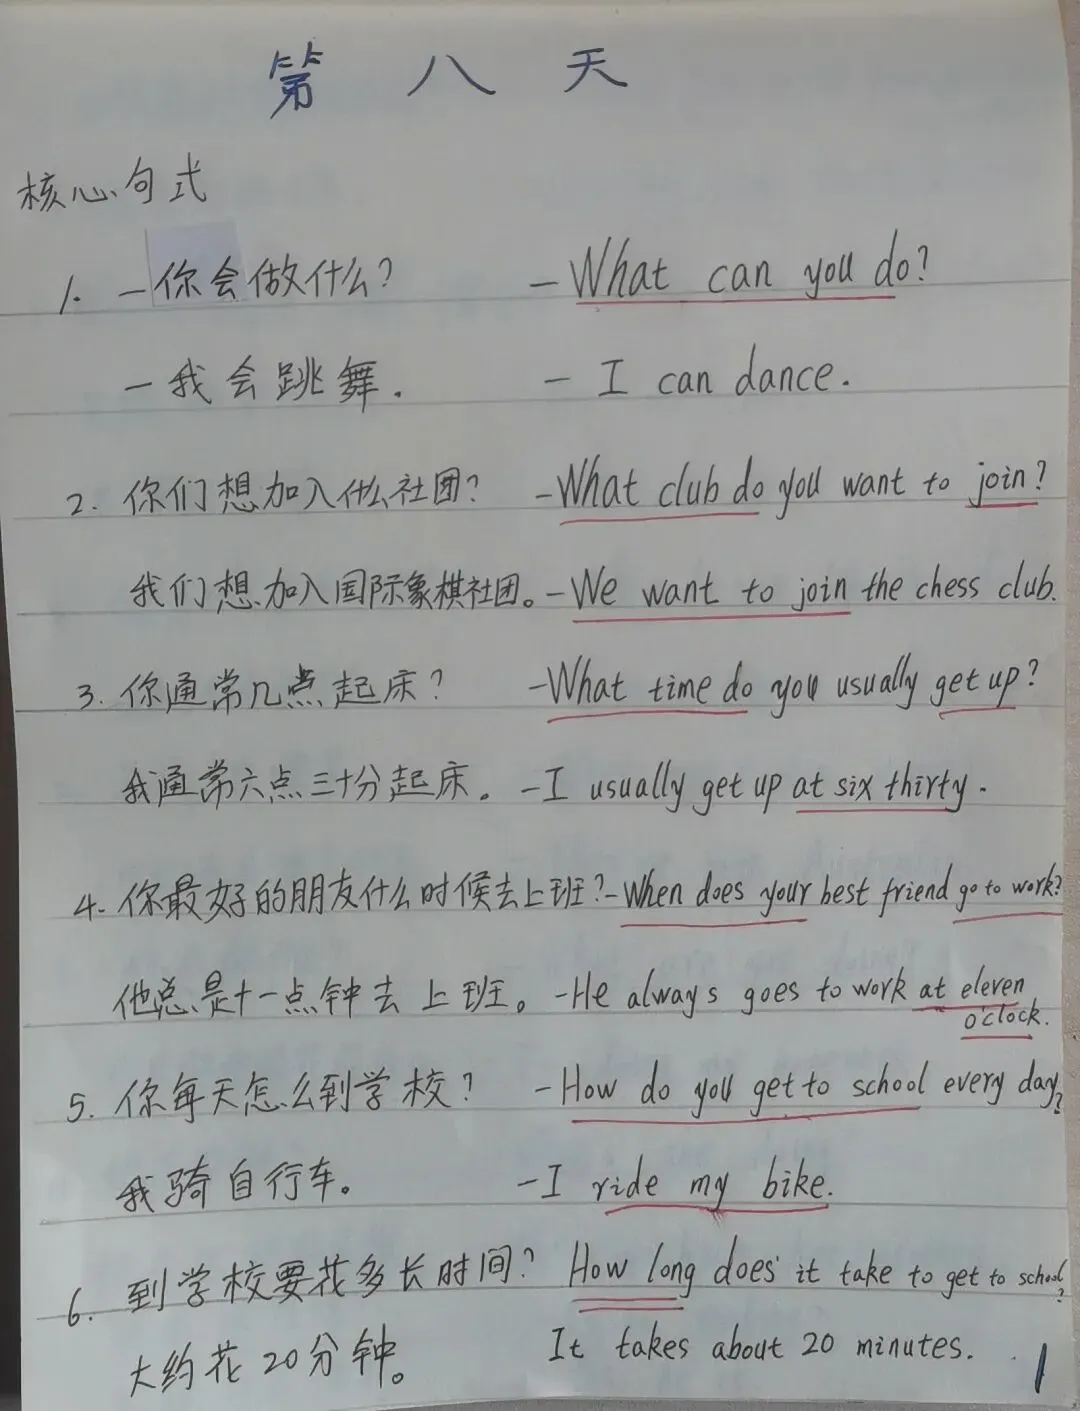 第八天
核心句式
1. －你会做什么? － What can you do?
－我会跳舞. － I can dance.
2. 你们想加入什么社团? －What club do you want to join?
我们想加入国际象棋社团。－We want to join the chess club.
3. 你通常几点起床? －What time do you usually get up?
我通常六点三十分起床。－I usually get up at six thirty.
4. 你最好的朋友什么时候去上班?－When does your best friend go to work?
他总是十一点钟去上班。－He always goes to work at eleven
o'clock.
5. 你每天怎么到学校? －How do you get to school every day?
我骑自行车。 －I ride my bike.
6. 到学校要花多长时间? How long does it take to get to school?
大约花20分钟。 It takes about 20 minutes.
1